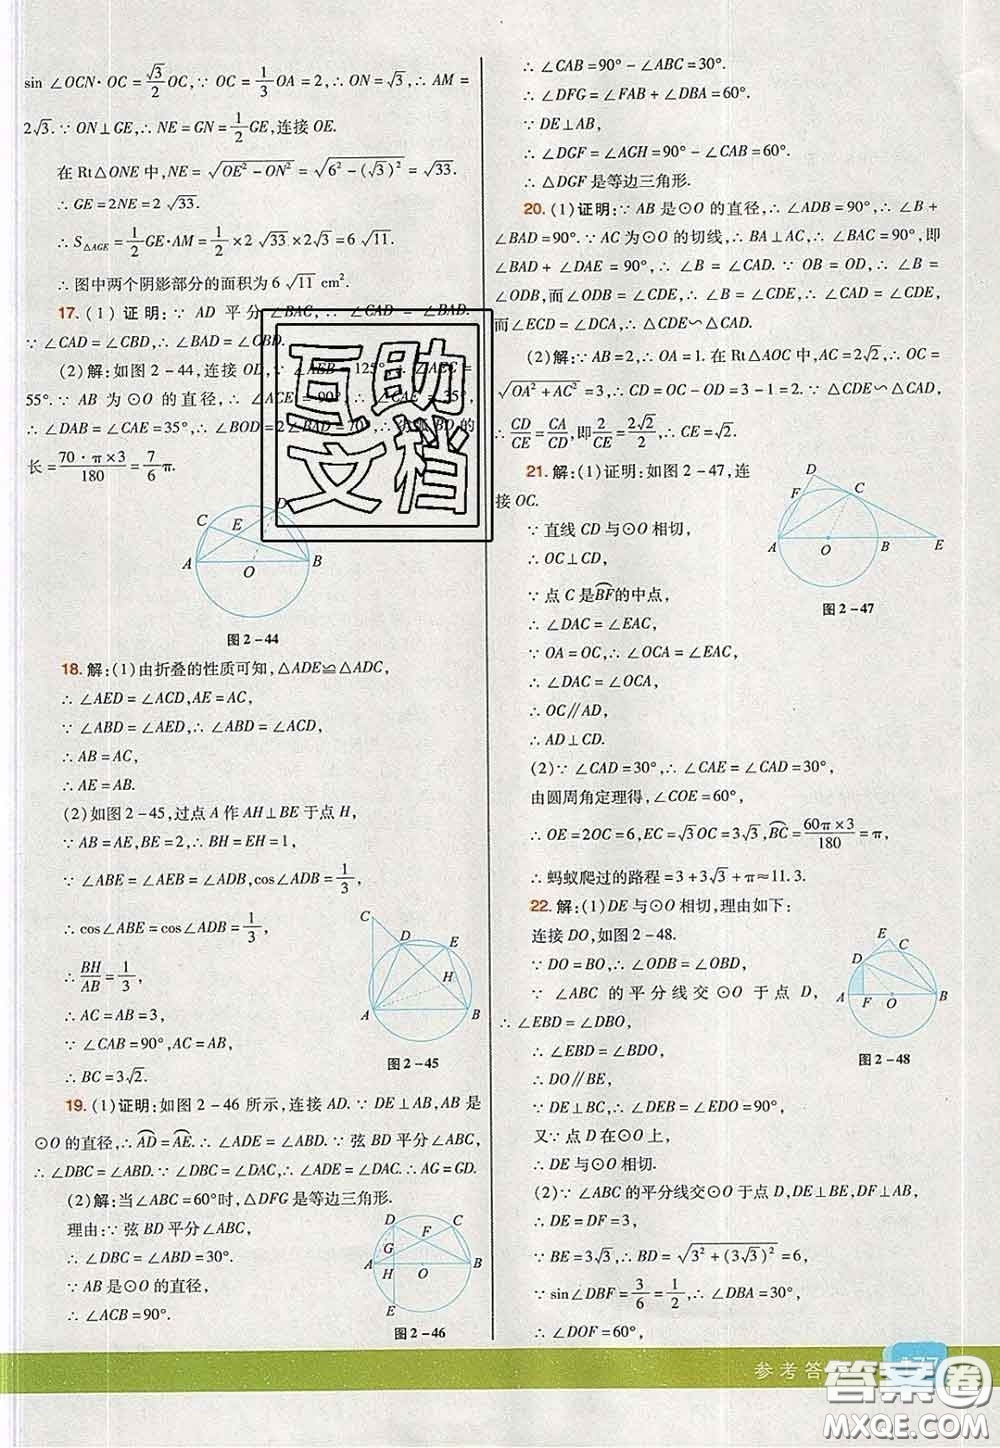 sin ∠OCN·OC=√3/2 OC,∵ OC=1/3 OA=2,∴ ON=√3,∴ AM=
2√3.∵ ON⊥GE,∴ NE=GN=1/2 GE,连接 OE.
在 Rt△ONE 中,NE=√(OE²-ON²)=√(6²-(√3)²)=√33.
∴ GE=2NE=2√33.
∴ S△AGE=1/2 GE·AM=1/2×2√33×2√3=6√11.
∴ 图中两个阴影部分的面积为 6√11 cm².
17.(1)证明:∵ AD 平分∠BAC,∴ ∠CAD=∠BAD.
∵ ∠CAD=∠CBD,∴ ∠BAD=∠CBD.
(2)解:如图 2-44,连接 OD,∵ ∠AEB=125°,∴ ∠AEC=
55°.∵ AB 为⊙O 的直径,∴ ∠ACE=90°,∴ ∠CAE=35°,
∴ ∠DAB=∠CAE=35°,∴ ∠BOD=2∠BAD=70°,∴ BD的
长=70·π×3/180=7/6 π.
C E D A O B
图 2-44
18.解:(1)由折叠的性质可知,△ADE≌△ADC,
∴ ∠AED=∠ACD,AE=AC,
∵ ∠ABD=∠AED,∴ ∠ABD=∠ACD,
∴ AB=AC,
∴ AE=AB.
(2)如图 2-45,过点 A 作 AH⊥BE 于点 H,
∵ AB=AE,BE=2,∴ BH=EH=1,
∵ ∠ABE=∠AEB=∠ADB,cos∠ADB=1/3,
∴ cos∠ABE=cos∠ADB=1/3,
∴ BH/AB=1/3,
∴ AC=AB=3,
∵ ∠CAB=90°,AC=AB,
∴ BC=3√2.
C D E H A B
图 2-45
19.(1)证明:如图 2-46 所示,连接 AD.∵ DE⊥AB,AB 是
⊙O 的直径,∴ AD⌒=AE⌒.∴ ∠ADE=∠ABD.∵ 弦 BD 平分∠ABC,
∴ ∠DBC=∠ABD.∵ ∠DBC=∠DAC,∴ ∠ADE=∠DAC.∴ AG=GD.
(2)解:当∠ABC=60°时,△DFG 是等边三角形.
理由:∵ 弦 BD 平分∠ABC,
∴ ∠DBC=∠ABD=30°.
∵ AB 是⊙O 的直径,
∴ ∠ACB=90°,
D C F G A H O B E
图 2-46
∴ ∠CAB=90°-∠ABC=30°.
∴ ∠DFG=∠FAB+∠DBA=60°.
∵ DE⊥AB,
∴ ∠DGF=∠AGH=90°-∠CAB=60°.
∴ △DGF 是等边三角形.
20.(1)证明:∵ AB 是⊙O 的直径,∴ ∠ADB=90°,∴ ∠B+
∠BAD=90°.∵ AC 为⊙O 的切线,∴ BA⊥AC,∴ ∠BAC=90°,即
∠BAD+∠DAE=90°,∴ ∠B=∠CAD.∵ OB=OD,∴ ∠B=
∠ODB,而∠ODB=∠CDE,∴ ∠B=∠CDE,∴ ∠CAD=∠CDE,
而∠ECD=∠DCA,∴ △CDE∽△CAD.
(2)解:∵ AB=2,∴ OA=1.在 Rt△AOC 中,AC=2√2,∴ OC=
√(OA²+AC²)=3,∴ CD=OC-OD=3-1=2.∵ △CDE∽△CAD,
∴ CD/CE=CA/CD,即2/CE=2√2/2,∴ CE=√2.
21.解:(1)证明:如图 2-47,连
接 OC.
∵ 直线 CD 与⊙O 相切,
∴ OC⊥CD,
∵ 点 C 是BF⌒的中点,
∴ ∠DAC=∠EAC,
∵ OA=OC,∴ ∠OCA=∠EAC,
∴ ∠DAC=∠OCA,
∴ OC∥AD,
∴ AD⊥CD.
D F C A O B E
图 2-47
(2)∵ ∠CAD=30°,∴ ∠CAE=∠CAD=30°,
由圆周角定理得,∠COE=60°,
∴ OE=2OC=6,EC=√3OC=3√3,BC⌒=60π×3/180=π,
∴ 蚂蚁爬过的路程=3+3√3+π≈11.3.
22.解:(1)DE 与⊙O 相切,理由如下:
连接 DO,如图 2-48.
∵ DO=BO,∴ ∠ODB=∠OBD,
∵ ∠ABC 的平分线交⊙O 于点 D,
∴ ∠EBD=∠DBO,
∴ ∠EBD=∠BDO,
∴ DO∥BE,
∵ DE⊥BC,∴ ∠DEB=∠EDO=90°,
又∵ 点 D 在⊙O 上,
∴ DE 与⊙O 相切.
E C D A F O B
图 2-48
(2)∵ ∠ABC 的平分线交⊙O 于点 D,DE⊥BE,DF⊥AB,
∴ DE=DF=3,
∵ BE=3√3,∴ BD=√(3²+(3√3)²)=6,
∵ sin∠DBF=3/6=1/2,∴ ∠DBA=30°,
∴ ∠DOF=60°,
互助
文档
参考答
答案圈
MXQE.COM